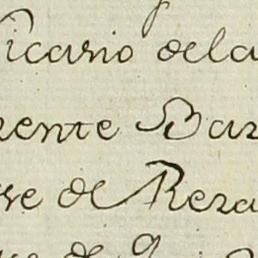 Vicario dela
rente Bar
re de Reza
de